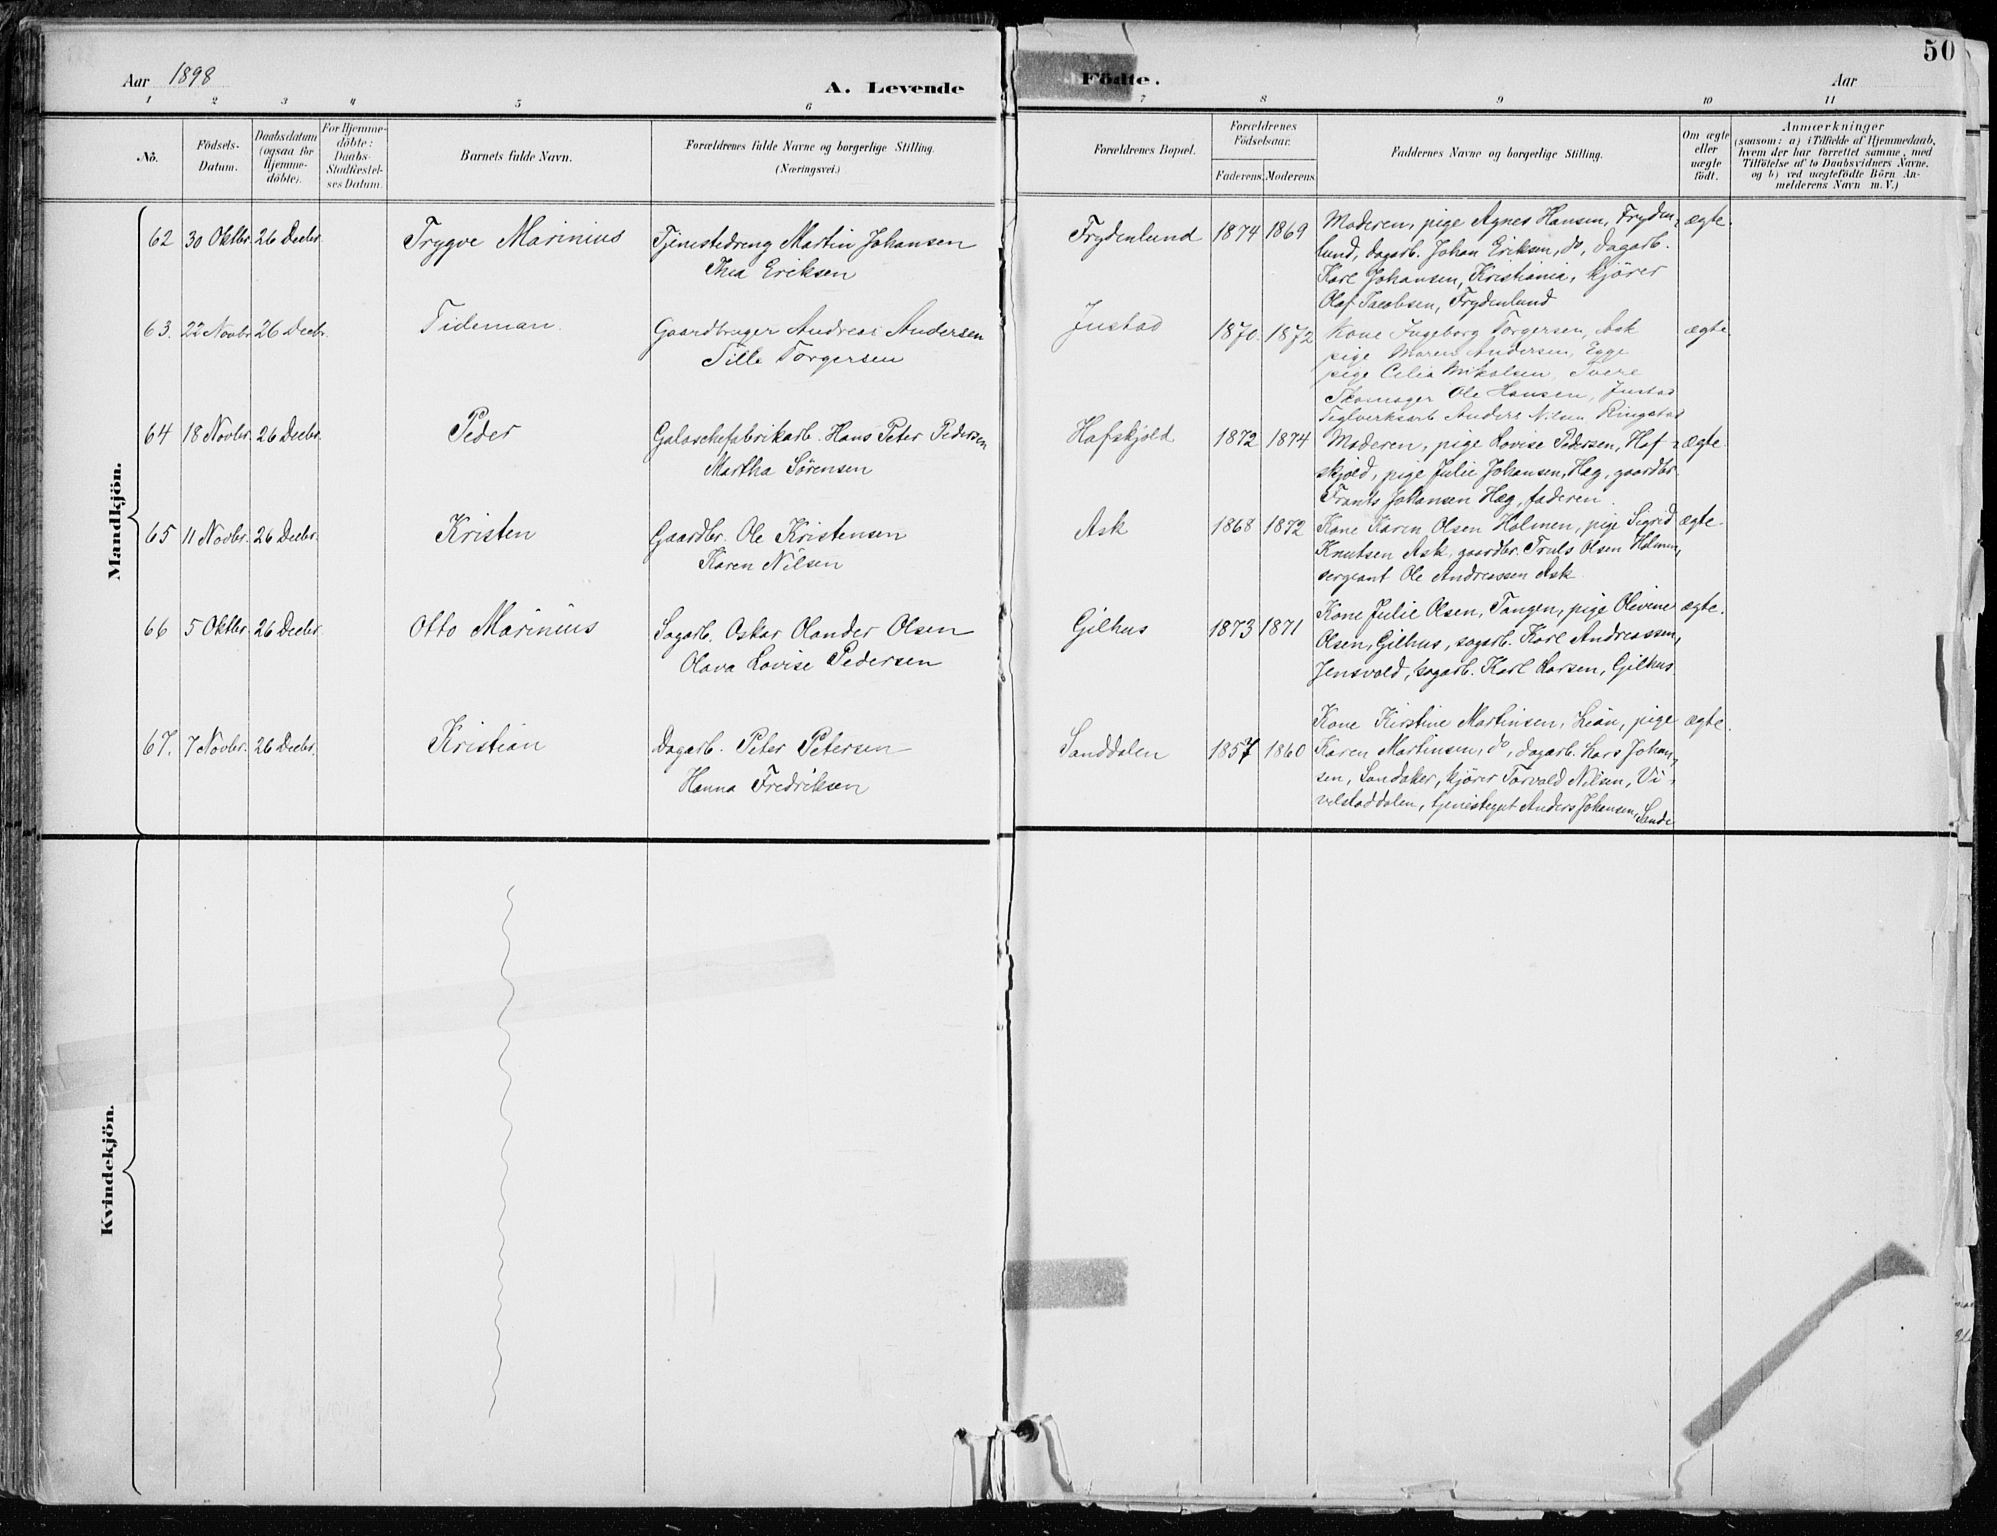 50
Aar 1898
A. Levende
Födte.
Aar
1 2 3 4 5 6 7 8 9 10 11
No.
Födsels-
Datum.
Daabsdatum
(ogsaa for
Hjemme-
döbte).
For Hjemme-
döbte:
Daabs-
Stadfæstel-
ses Datum.
Barnets fulde Navn.
Forældrenes fulde Navne og borgerlige Stilling.
(Næringsvei.)
Forældrenes Bopæl.
Forældrenes
Födselsaar.
Faderens. Moderens.
Faddernes Navne og borgerlige Stilling.
Om ægte
eller
uægte
födt.
Anmærkninger
(saasom: a) i Tilfælde af Hjemmedaab,
hvem der har forrettet samme, med
Tilföielse af to Daabsvidners Navne,
og b) ved uægtefödte Börn An-
melderens Navn m. V.)
Mandkjön.
62 30 Oktbr. 26 Decbr. Trygve Marinius Tjenestedreng Martin Johansen
Thea Eriksen
Frydenlund 1874 1869 Moderen, pige Agnes Hansen, Fryden- ægte.
lund, dagarb. Johan Eriksen, do, dagarb.
Karl Johansen, Kristiania, kjører
Olaf Jacobsen, Frydenlund
63. 22 Novbr. 26 Decbr. Tideman. Gaardbruger Andreas Andersen
Tille Torgersen
Justad 1870. 1872 Kone Ingeborg Torgersen, Ask ægte.
pige Maren Andersen, Egge
pige Celia Mikalsen, Tvere
Skomager Ole Hansen, Justad
Teglverksarb Anders Nilsen Ringstad
64 18 Novbr. 26 Decbr. Peder Galoschefabrikarb. Hans Peter Pedersen
Martha Sørensen
Hafskjold 1872 1874 Moderen, pige Lovise Pedersen, Haf- ægte.
skjold, pige Julie Johansen, Hæg, gaardbr.
Frants Johansen Hæg, faderen.
65 11 Novbr. 26 Decbr. Kristen Gaardbr. Ole Kristensen
Karen Nilsen
Ask 1868 1872 Kone Karen Olsen Holmen, pige Sigrid ægte.
Knutsen Ask, gaardbr. Truls Olsen Holmen,
sergeant Ole Andreassen Ask.
66 5 Oktbr. 26 Decbr. Otto Marinius Sagarb. Oskar Olander Olsen
Olava Lovise Pedersen
Gilhus 1873 1871 Kone Julie Olsen, Tangen, pige Olevine ægte.
Olsen, Gilhus, sagarb. Karl Andreassen,
Jensvold, sagarb. Karl Larsen, Gilhus.
67. 7 Novbr. 26 Decbr. Kristian Dagarb. Peter Petersen
Hanna Fredriksen
Sanddalen 1857 1860 Kone Kirstine Martinsen, Lian, pige ægte.
Karen Martinsen, do, dagarb. Lars Johan-
sen, Sandaker, kjører Torvald Nilsen, Vi-
velstaddalen, tjenestegut Anders Johansen, Sande
Kvindekjön.